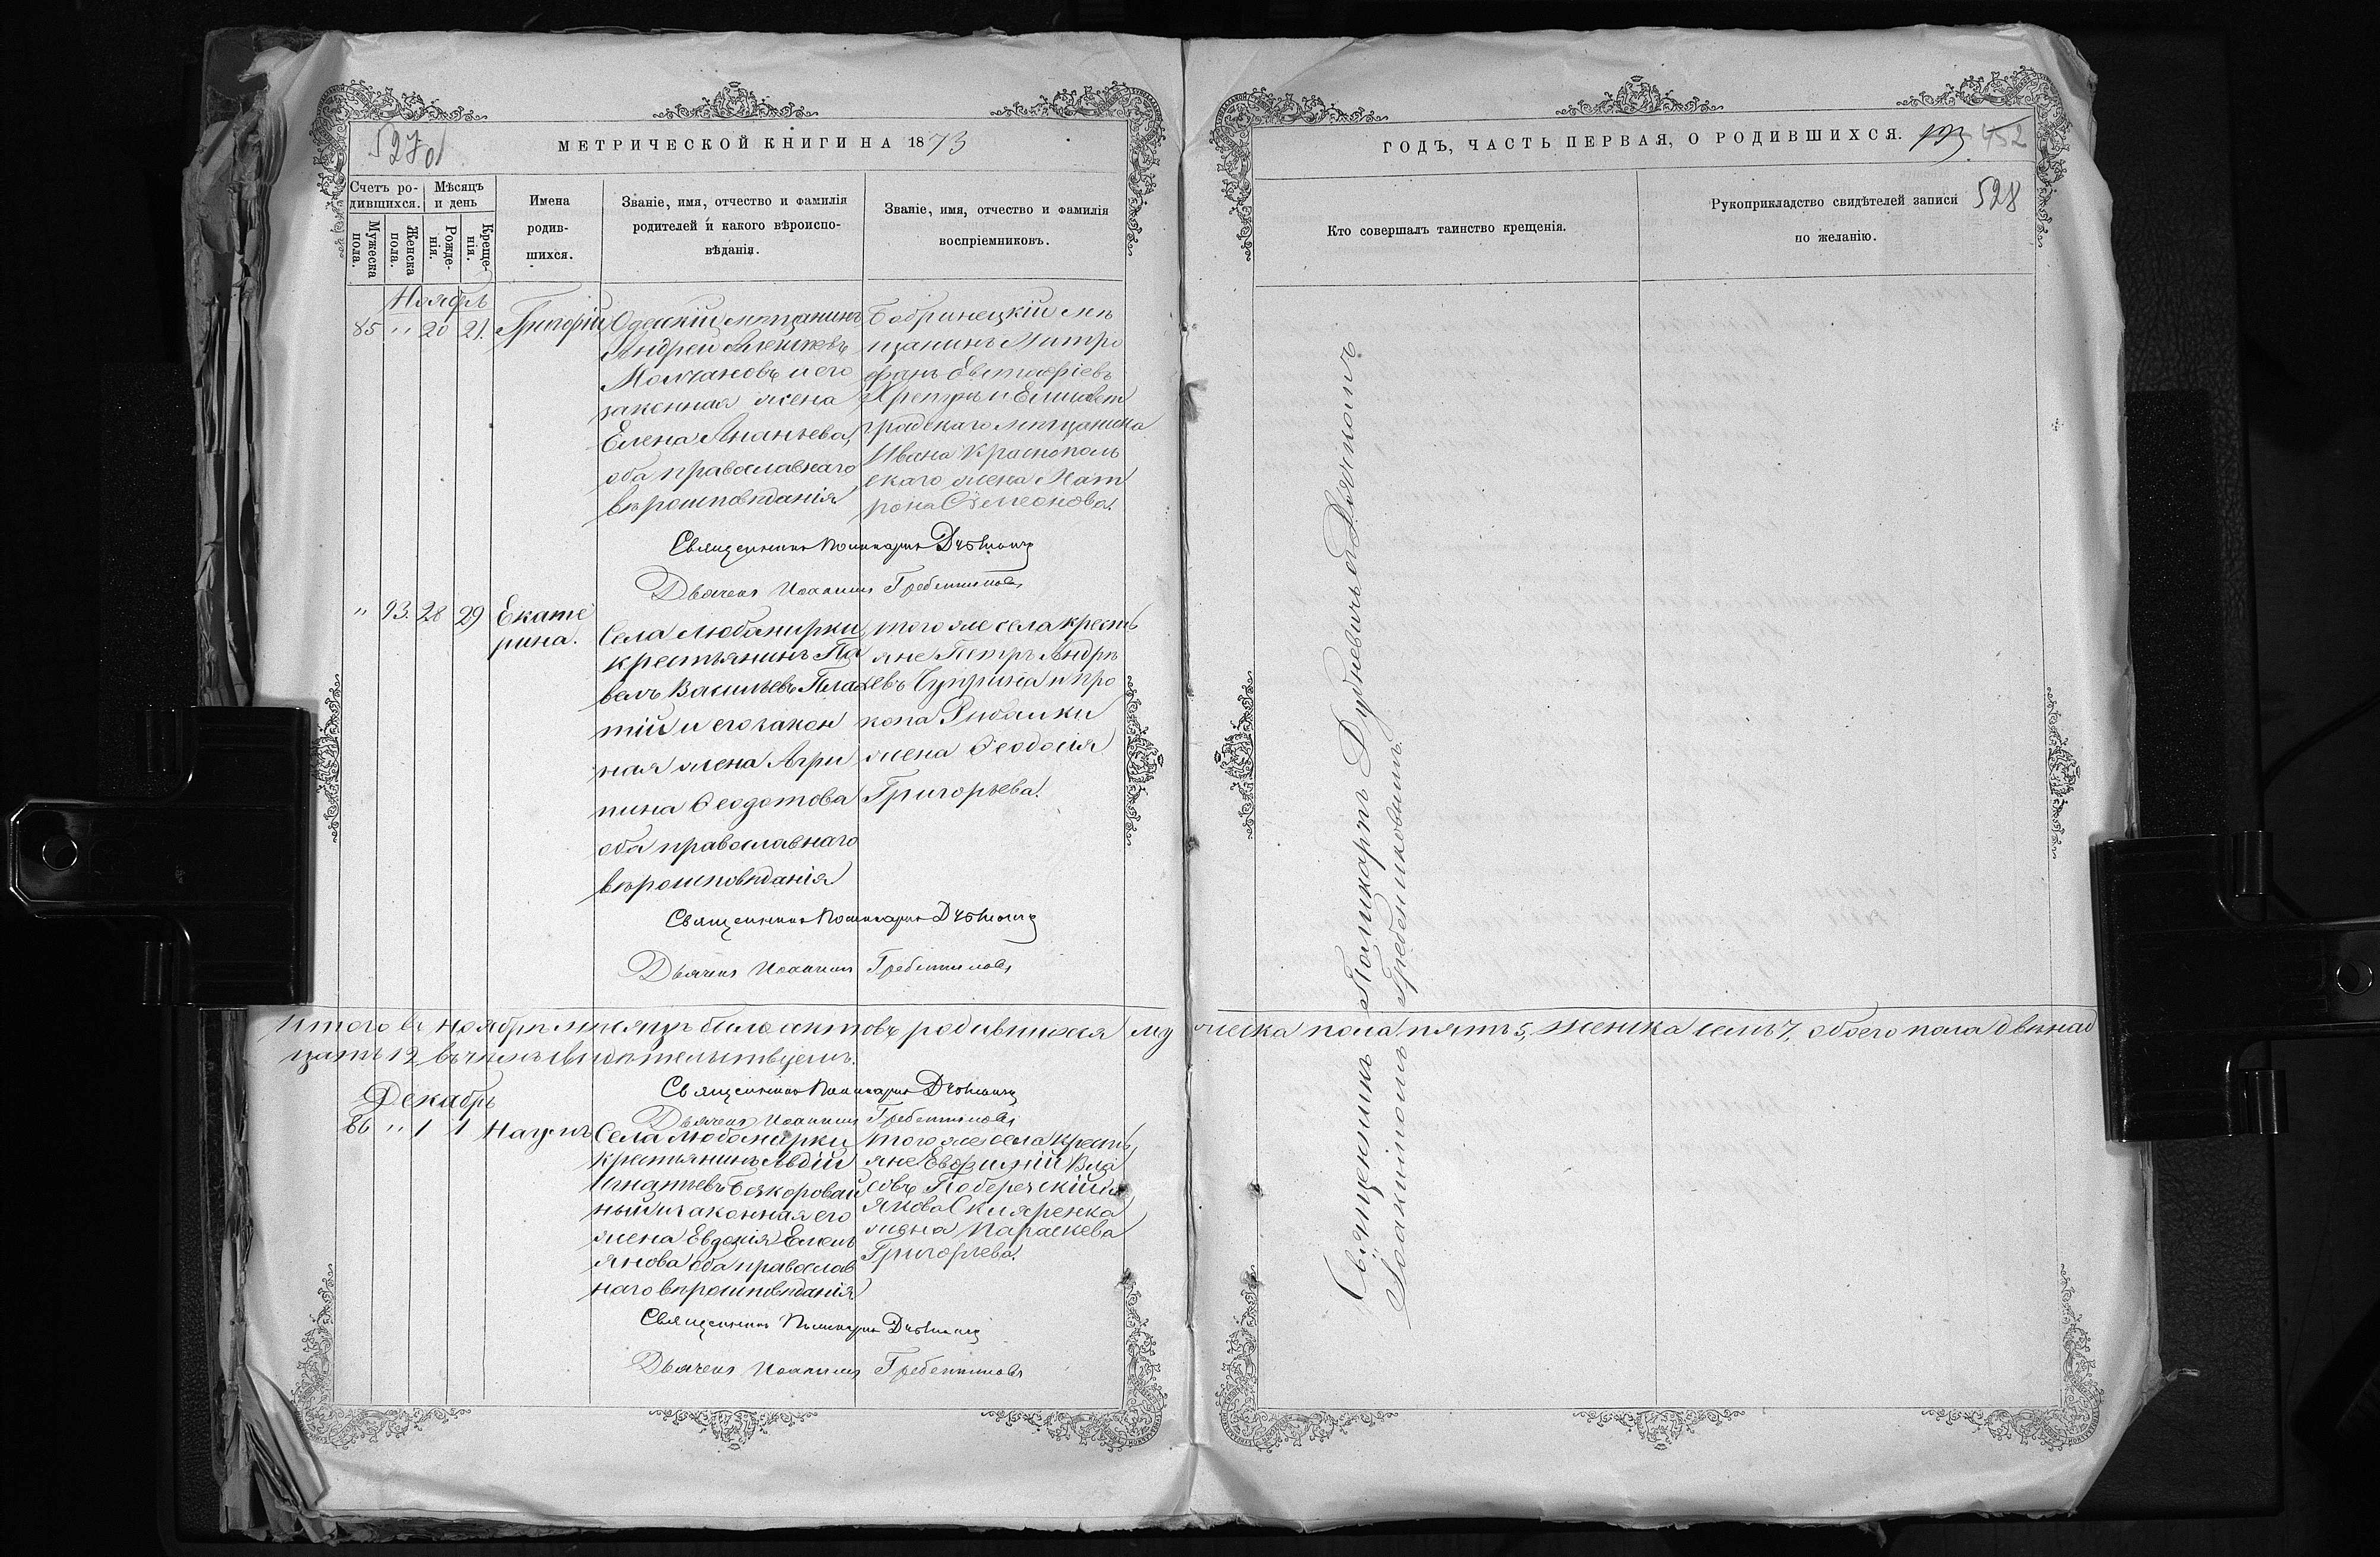 527 об
МЕТРИЧЕСКОЙ КНИГИ НА 1873
Счетъ ро-
дившихся.
Мѣсяцъ
и день
Мужеска
пола.
Женска
пола.
Рожде-
нія.
Креще-
нія.
Имена
родив-
шихся.
Званіе, имя, отчество и фамилія
родителей и какого вѣроиспо-
вѣданія.
Званіе, имя, отчество и фамилія
воспріемниковъ.
Ноябрь
85 " 20 21. Григорій
Одескій мѣщанинъ
Андрей
Молчановъ и его
законная жена
Елена Ананьева,
оба православнаго
вѣроисповѣданія
Бобринецкій мѣ
щанинъ Митро
фанъ Евтифіевъ
и Елисавет
градскаго мѣщанина
Ивана Краснополь
скаго жена Мат
рона Симеонова.
Священникъ Поликарпъ
Дьячекъ Іоакимъ Гребенниковъ
" 93. 28 29 Екате
рина.
Села Любомирки
крестьянинъ Па
велъ Васильевъ Плах
тій и его закон
ная жена Агри
пина Ѳеодотова
оба православнаго
вѣроисповѣданія
того же села кресть
яне Петръ Андрѣ
евъ Чуприна и Про
копа Рибалки
жена Ѳеодосія
Григорьева.
Священникъ Поликарпъ
Дьячекъ Іоакимъ Гребенниковъ
Итого въ ноябрѣ мѣсяцѣ было актовъ родившихся му
жеска пола пять 5, женска семь 7, обоего пола двѣнад
цать 12, въ чемъ свидѣтельствуемъ.
Священникъ Поликарпъ
Дьячекъ Іоакимъ Гребенниковъ
Декабрь
86 " 1 1 Наумъ
Села Любомирки
крестьянинъ Авдій
Игнатьевъ Безкоровай
ный и законная его
жена Евдокія Емель
янова оба православ
наго вѣроисповѣданія
того же села кресть
яне Евфимій Вла
совъ Побережскій и
Якова Скляренка
жена Параскева
Григорьева.
Священникъ Поликарпъ
Дьячекъ Іоакимъ Гребенниковъ
ГОДЪ, ЧАСТЬ ПЕРВАЯ, О РОДИВШИХСЯ.
452
528
Кто совершалъ таинство крещенія.
Рукоприкладство свидѣтелей записи
по желанію.
Священникъ Поликарпъ Дубневичъ съ Дьячкомъ
Іоакимомъ Гребенниковымъ.